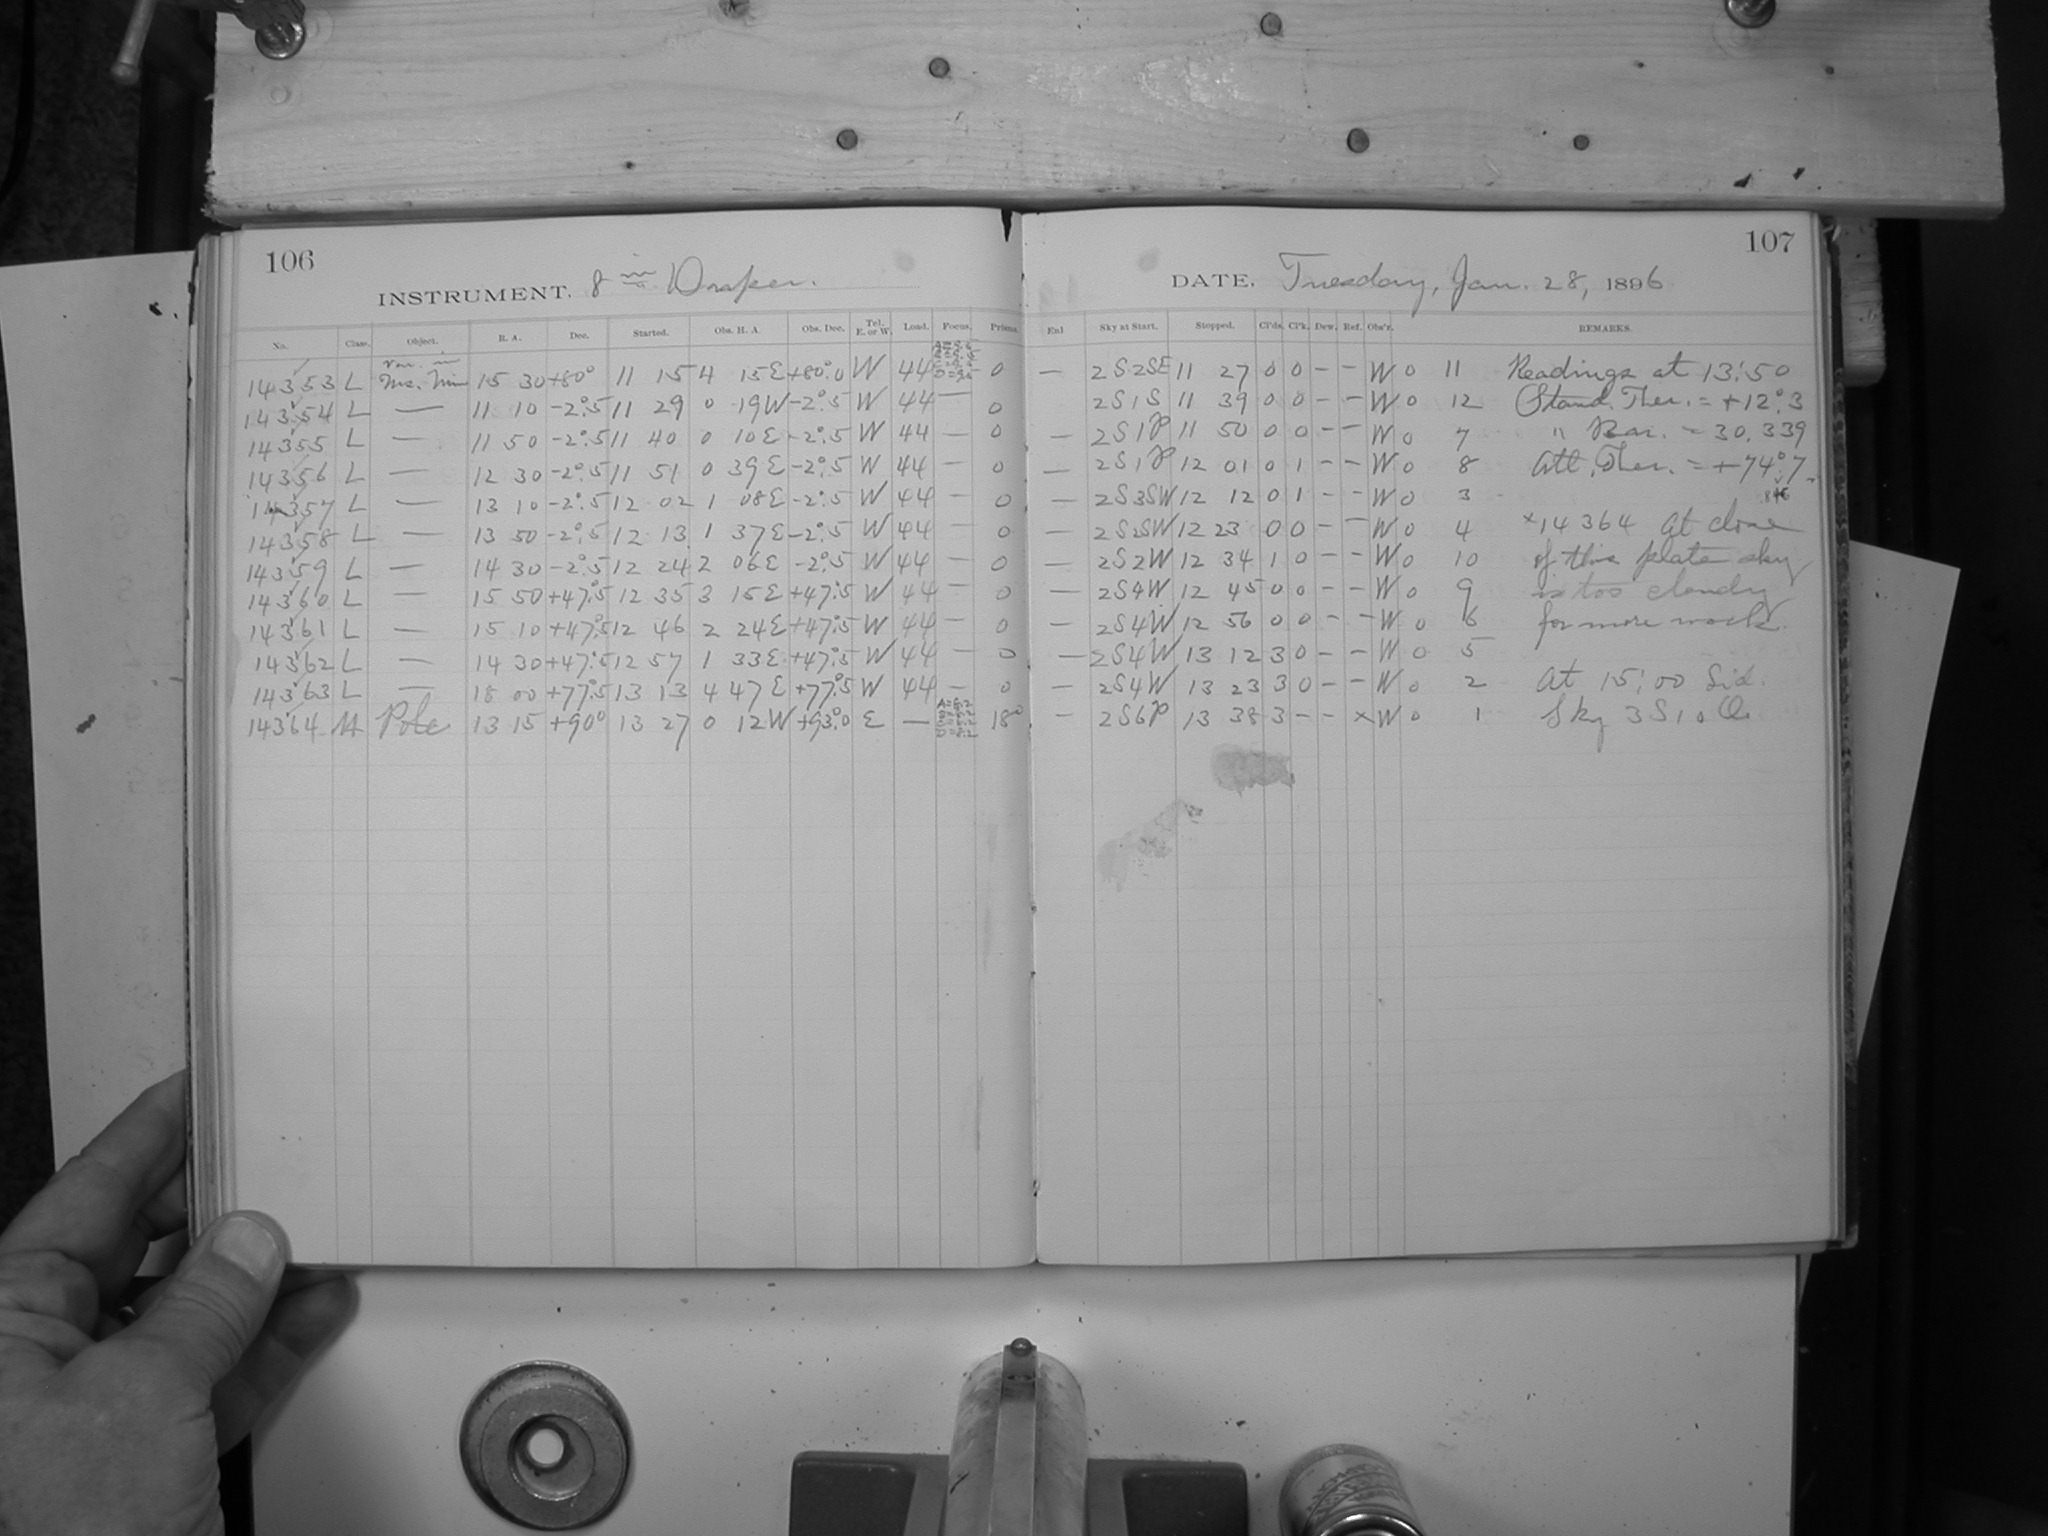 106
INSTRUMENT. 8 in Draper.
No. Class. Object. R. A. Dec. Started. Obs. H. A. Obs. Dec. Tel. E. or W. Load. Focus. Prisms.
14353 L var. in 15 30 +80° 11 15 4 15E +80°.0 W 44 0
14354 L — 11 10 -2°.5 11 29 0 19W -2°.5 W 44 — 0
14355 L — 11 50 -2°.5 11 40 0 10E -2°.5 W 44 — 0
14356 L — 12 30 -2°.5 11 51 0 39E -2°.5 W 44 — 0
14357 L — 13 10 -2°.5 12 02 1 08E -2°.5 W 44 — 0
14358 L — 13 50 -2°.5 12 13 1 37E -2°.5 W 44 — 0
14359 L — 14 30 -2°.5 12 24 2 06E -2°.5 W 44 — 0
14360 L — 15 50 +47°.5 12 35 3 15E +47°.5 W 44 — 0
14361 L — 15 10 +47°.5 12 46 2 24E +47°.5 W 44 — 0
14362 L — 14 30 +47°.5 12 57 1 33E +47°.5 W 44 — 0
14363 L — 18 00 +77°.5 13 13 4 47E +77°.5 W 44 — 0
14364 Pole 13 15 +90° 13 27 0 12W +93°.0 E — 18°
107
DATE. Tuesday, Jan. 28, 1896
Enl Sky at Start. Stopped. Cl'ds. Cl'k. Dew. Ref. Obs'r. REMARKS.
— 2S2SE 11 27 0 0 - - W 0 11 Readings at 13:50
2S1S 11 39 0 0 - - W 0 12 Stand. Ther. = +12°.3
— 2S1P 11 50 0 0 - - W 0 7 " Bar. = 30.339
— 2S1P 12 01 0 1 - - W 0 8 Att. Ther. = +74°.7
— 2S3SW 12 12 0 1 - - W 0 3
— 2S2SW 12 23 0 0 - - W 0 4 ×14364 At close
— 2S2W 12 34 1 0 - - W 0 10 of this plate sky
— 2S4W 12 45 0 0 - - W 0 9 is too cloudy
— 2S4W 12 56 0 0 - - W 0 6 for more work.
— 2S4W 13 12 3 0 - - W 0 5
— 2S4W 13 23 3 0 - - W 0 2 At 15:00 Sid.
— 2S6P 13 38 3 - - × W 0 1 Sky 3S10